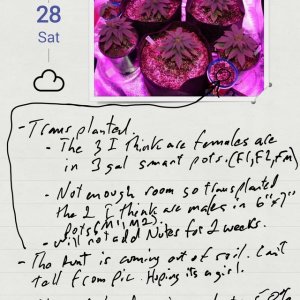 28
Sat
- Transplanted.
- The 3 I think are females are
in 3 gal smart pots. (F1, F2, FM)
- Not enough room so transplanted
the 2 I think are males in 6"x7"
pots (M1, M2)
- will not add Notes for 2 weeks.
- The runt is coming out of soil. Can't
tell from pic. Hoping its a girl.